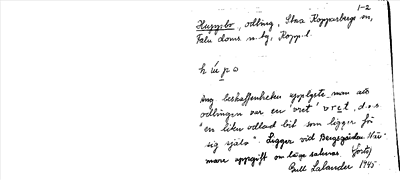 1-2
Husarbo, odling, Stora Kopparbergs sn,
Falu doms. n. tg, Kopp. l.
Ang. beskaffenheten upplyste man att
odlingen var en "vret" vret, d.v.s
"en liten odlad bit som ligger för
sig själv". Ligger vid Bergsgården. När-
mare uppgift om läge saknas. (forts)
Bull Lalander 1945